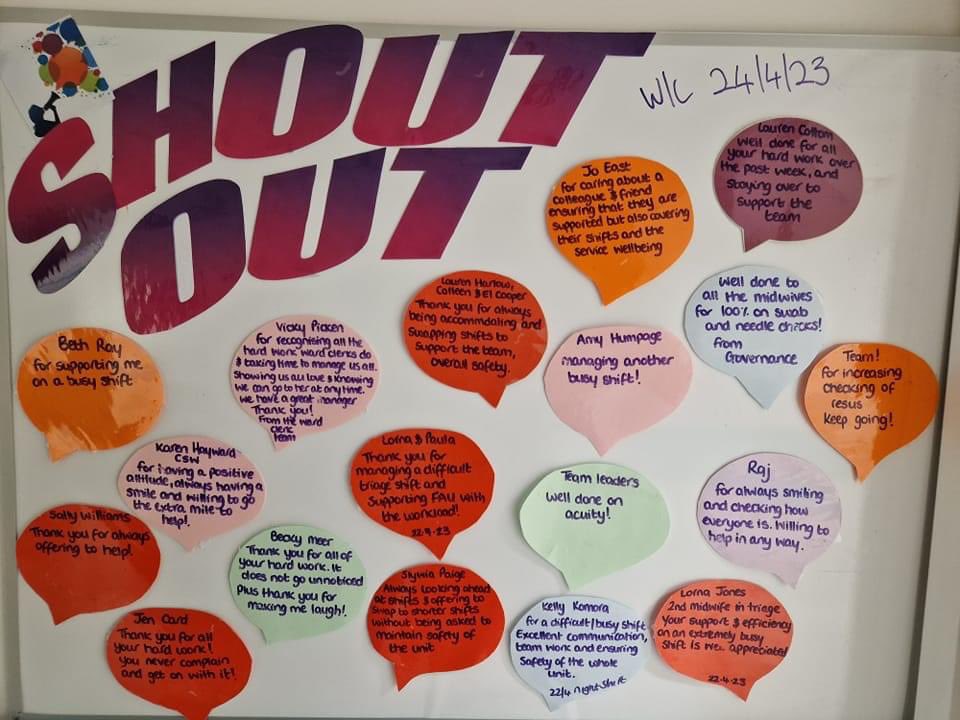 SHOUT
OUT
W/C 24/4/23
Lauren Cottom
Well done for all
your hard work over
the past week, and
staying over to
support the
team
Jo East
for caring about a
colleague & friend
ensuring that they are
supported but also covering
their shifts and the
service wellbeing
Lauren Harlow,
Colleen & El Cooper
Thank you for always
being accommdating and
swapping shifts to
support the team,
overall safety.
Well done to
all the midwives
for 100% on swab
and needle checks!
from
Governance
Beth Ray
for supporting me
on a busy shift
Vicky Picken
for recognising all the
hard work ward clerks do
& taking time to manage us all.
Showing us all love & knowing
we can go to her at any time.
We have a great manager
Thank you!
From the ward
clerk
team
Amy Humpage
managing another
busy shift!
Team!
for increasing
checking of
resus
Keep going!
Karen Hayward
CSW
for having a positive
attitude, always having a
smile and willing to go
the extra mile to
help!
Lorna & Paula
Thank you for
managing a difficult
triage shift and
Supporting FAU with
the workload!
22.4.23
Team leaders
well done on
acuity!
Raj
for always smiling
and checking how
everyone is. Willing to
help in any way.
Sally Williams
Thank you for always
offering to help!
Becky Meer
Thank you for all of
your hard work. It
does not go unnoticed
Plus thank you for
making me laugh!
Slywia Paige
Always looking ahead
at shifts & offering to
swap to shorter shifts
without being asked to
maintain safety of
the unit
Kelly Komora
for a difficult/busy shift
Excellent communication,
team work and ensuring
Safety of the whole
unit.
22/4 night shift
Lorna Jones
2nd midwife in triage
Your support & efficiency
on an extremely busy
shift is well appreciated!
22.4.23
Jen Card
Thank you for all
your hard work!
you never complain
and get on with it!